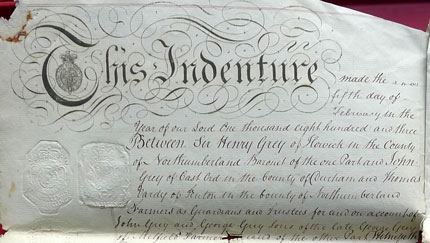 This Indenture made the
fifth day of
February in the
Year of our Lord One thousand eight hundred and three
Between Sir Henry Grey of Howick in the County
of Northumberland Baronet of the one Part and John
Grey of East Ord in the County of Durham and Thomas
Hardy of in the County of Northumberland
Farmers as Guardians and Trustees for and on account of
John Grey and George Grey Sons of the late George Grey
of Farmer of the other Part Witnesseth